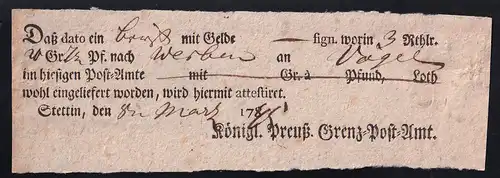 Daß dato ein Brief mit Gelde — sign. worin 3 Rthlr.
Gr. Pf. nach Werben an Vogel
im hiesigen Post-Amte mit Gr. à Pfund, Loth
wohl eingeliefert worden, wird hiermit attestiret.
Stettin, den 8tn Martz 178
Königl. Preuß. Grenz-Post-Amt.